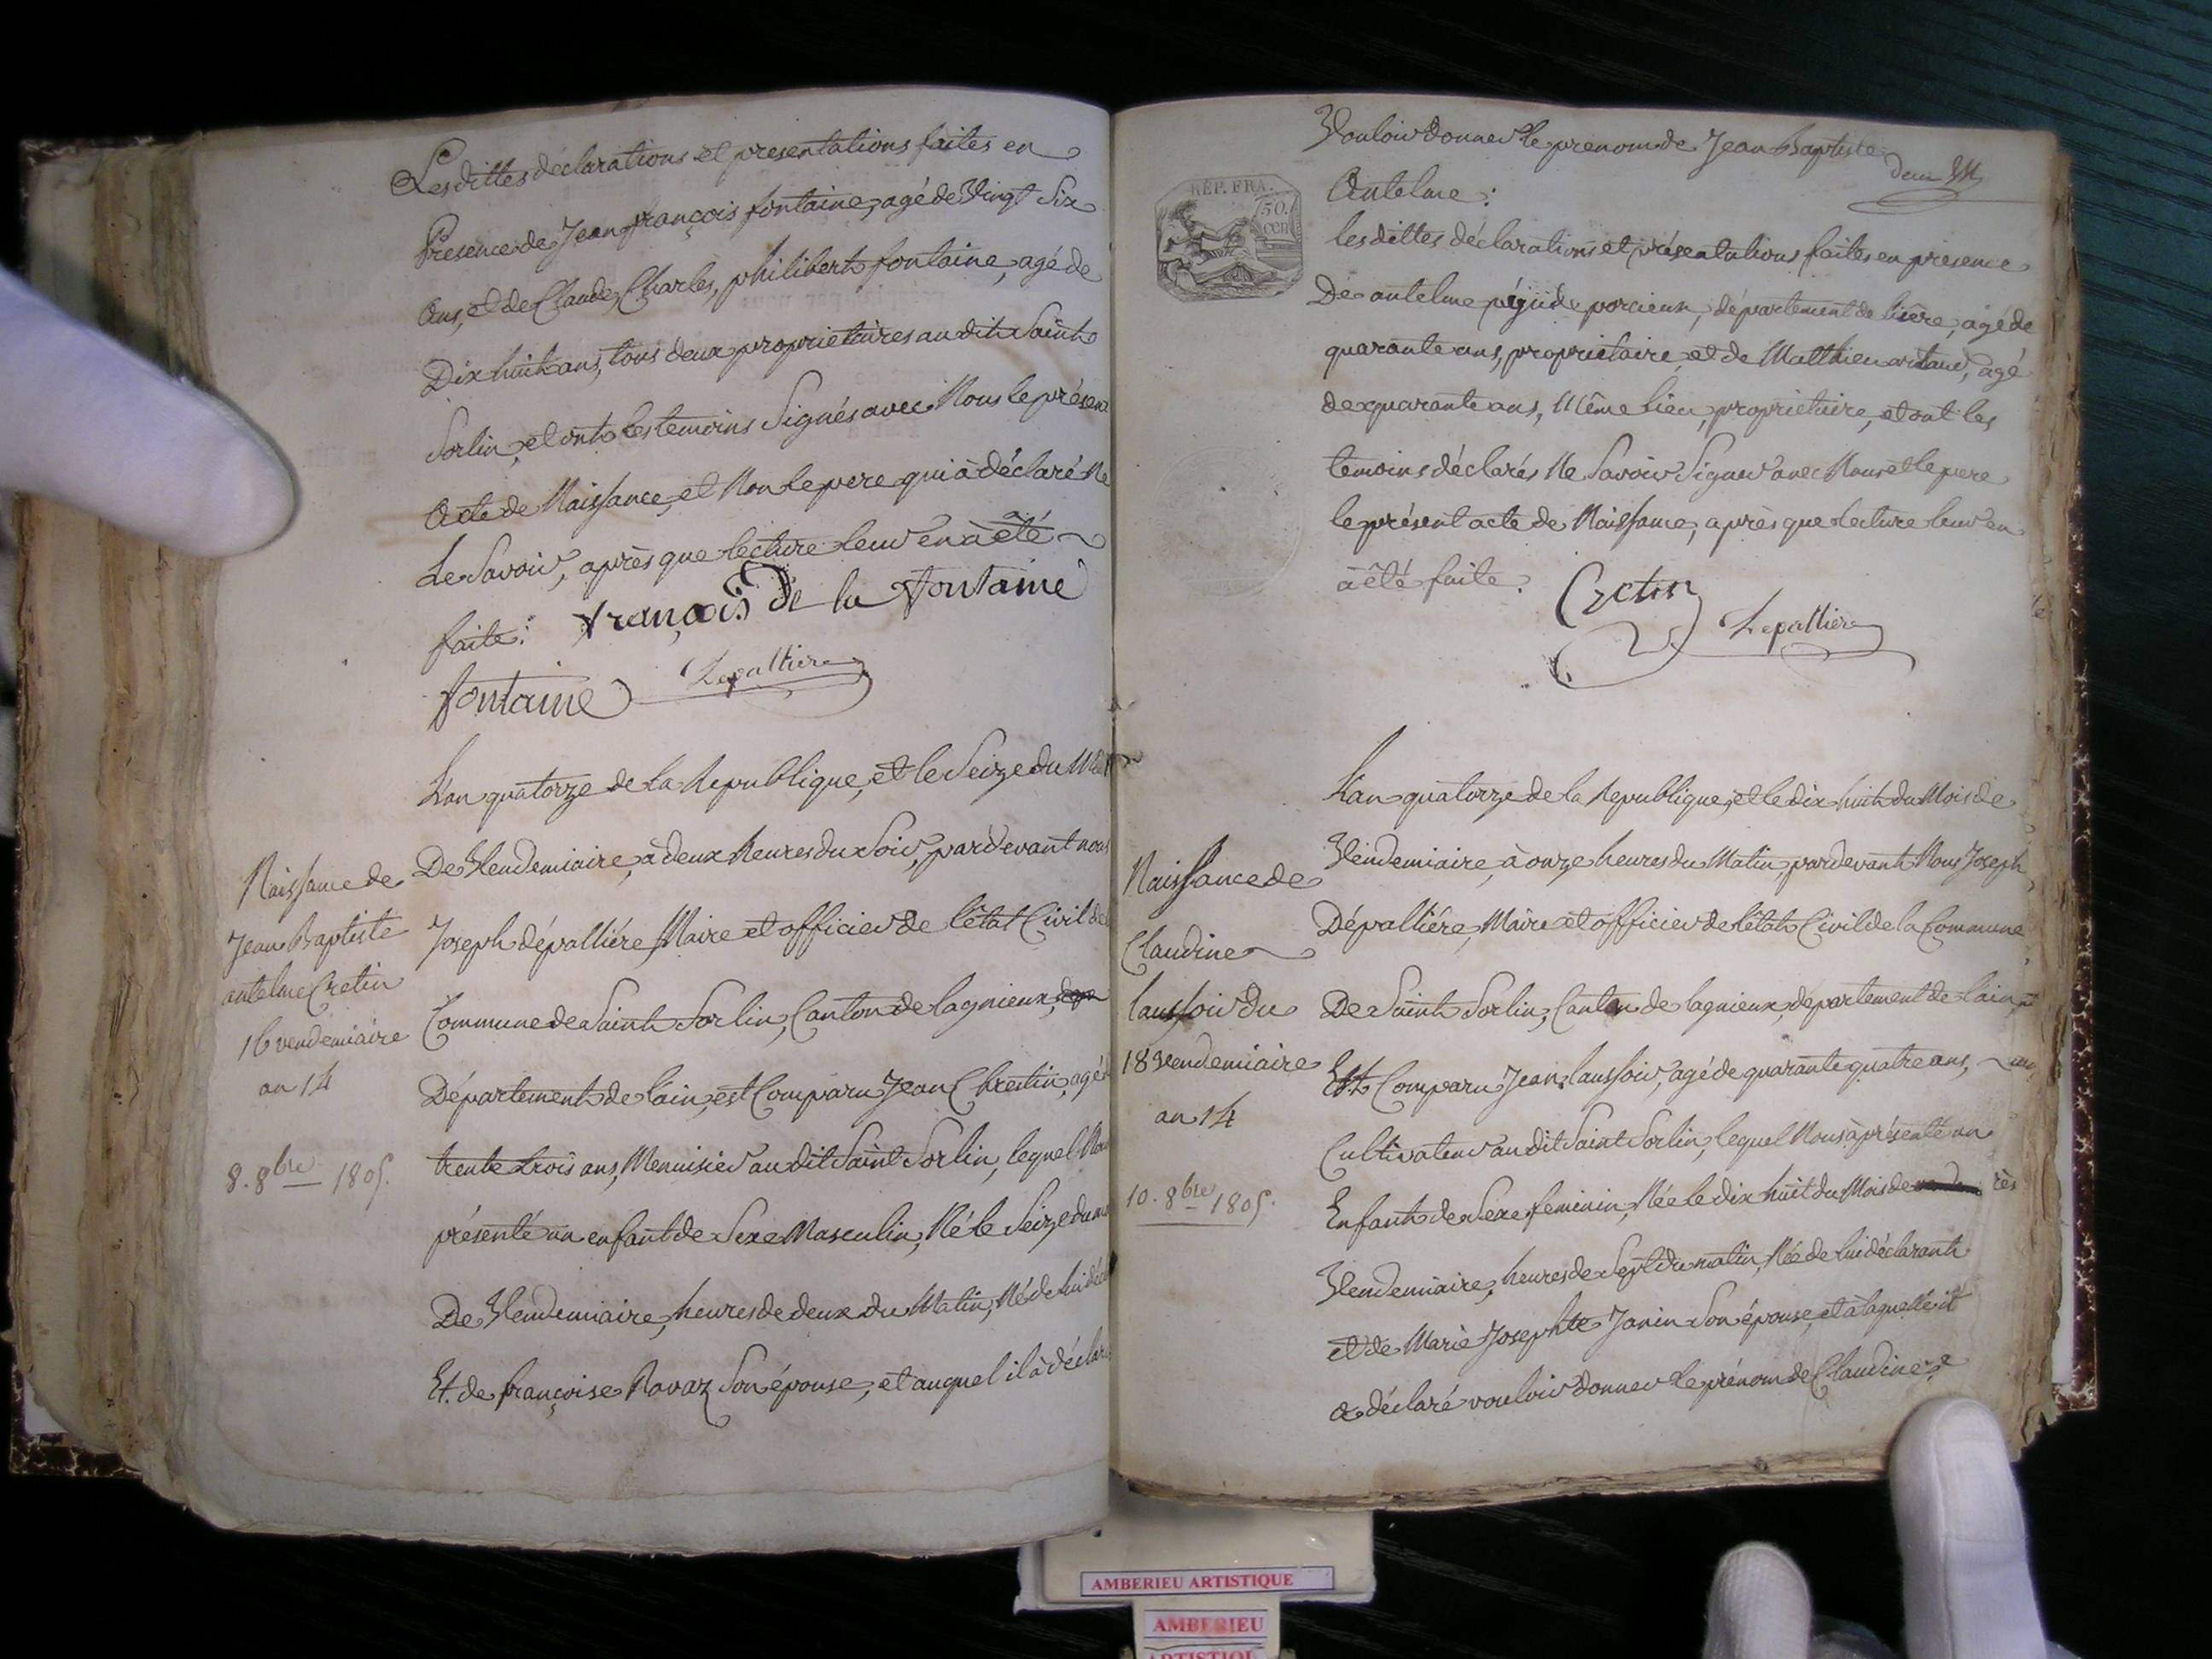 Les dittes déclarations et presentations faites en
Presence de Jean françois fontaine, agé de Vingt Six
Ans, et de Claude, Charles, philibert fontaine, agé de
Dix huit ans, tous deux propriettaires au dit Saint
Sorlin, et ont les temoins Signés avec Nous le présent
Acte de Naissance, et Non le pere qui à déclaré Ne
Le Savoir, après que lecture leur en à été
faite: françois De la fontaine
fontaine Depalliere
Naissance de
Jean Baptiste
antelme Cretin
16 vendemiaire
an 14
8. 8bre 1805.
L'an quatorze de la Republique, et le Seize du Mois
De Vendemiaire, à deux heures du Soir, pardevant nous
Joseph dépalliére Maire et officier de l'état Civil de
Commune de Saint Sorlin, Canton de lagnieux,
Département de l'ain, est Comparu Jean Chretin, agé
trente trois ans, Menuisier au dit Saint Sorlin, lequel Nous
présenté un enfant de Sexe Masculin, Né le Seize du
De Vendemiaire, heures de deux du Matin, Né de lui
Et de françoise Ravaz Son épouse, et auquel il à déclaré
Vouloir donner le prenom de Jean Baptiste
Antelme:
REP. FRA.
50.
cen
les dittes déclarations et présentations faites en presence
De antelme de porcieux, département de lisère, agé de
quarante ans, proprietaire, et de Matthieu, agé
de quarante ans, Même lieu, proprietaire, et ont les
temoins déclarés Ne Savoir Signer avec Nous et le pere
le présent acte de Naissance, après que lecture leur en
à été faite. Cretin Depalliere
Naissance de
Claudine
laussoir du
18 vendemiaire
an 14
10. 8bre 1805.
L'an quatorze de la Republique, et le dix huit du Mois de
Vendemiaire, à onze heures du Matin, pardevant Nous Joseph
Dépalliére, Maire et officier de l'état Civil de la Commune
De Saint Sorlin, Canton de lagnieux, département de l'ain,
Est Comparu Jean laussoir, agé de quarante quatre ans,
Cultivateur au dit Saint Sorlin, lequel Nous à présenté un
Enfant de Sexe feminin, Née le dix huit du Mois de
Vendemiaire, heures de Sept du matin, Née de lui déclarant
et de Marie Josephte Janin Son épouse, et à laquelle il
a déclaré vouloir donner le prénom de Claudine
AMBERIEU ARTISTIQUE
AMBERIEU
ARTISTIQUE